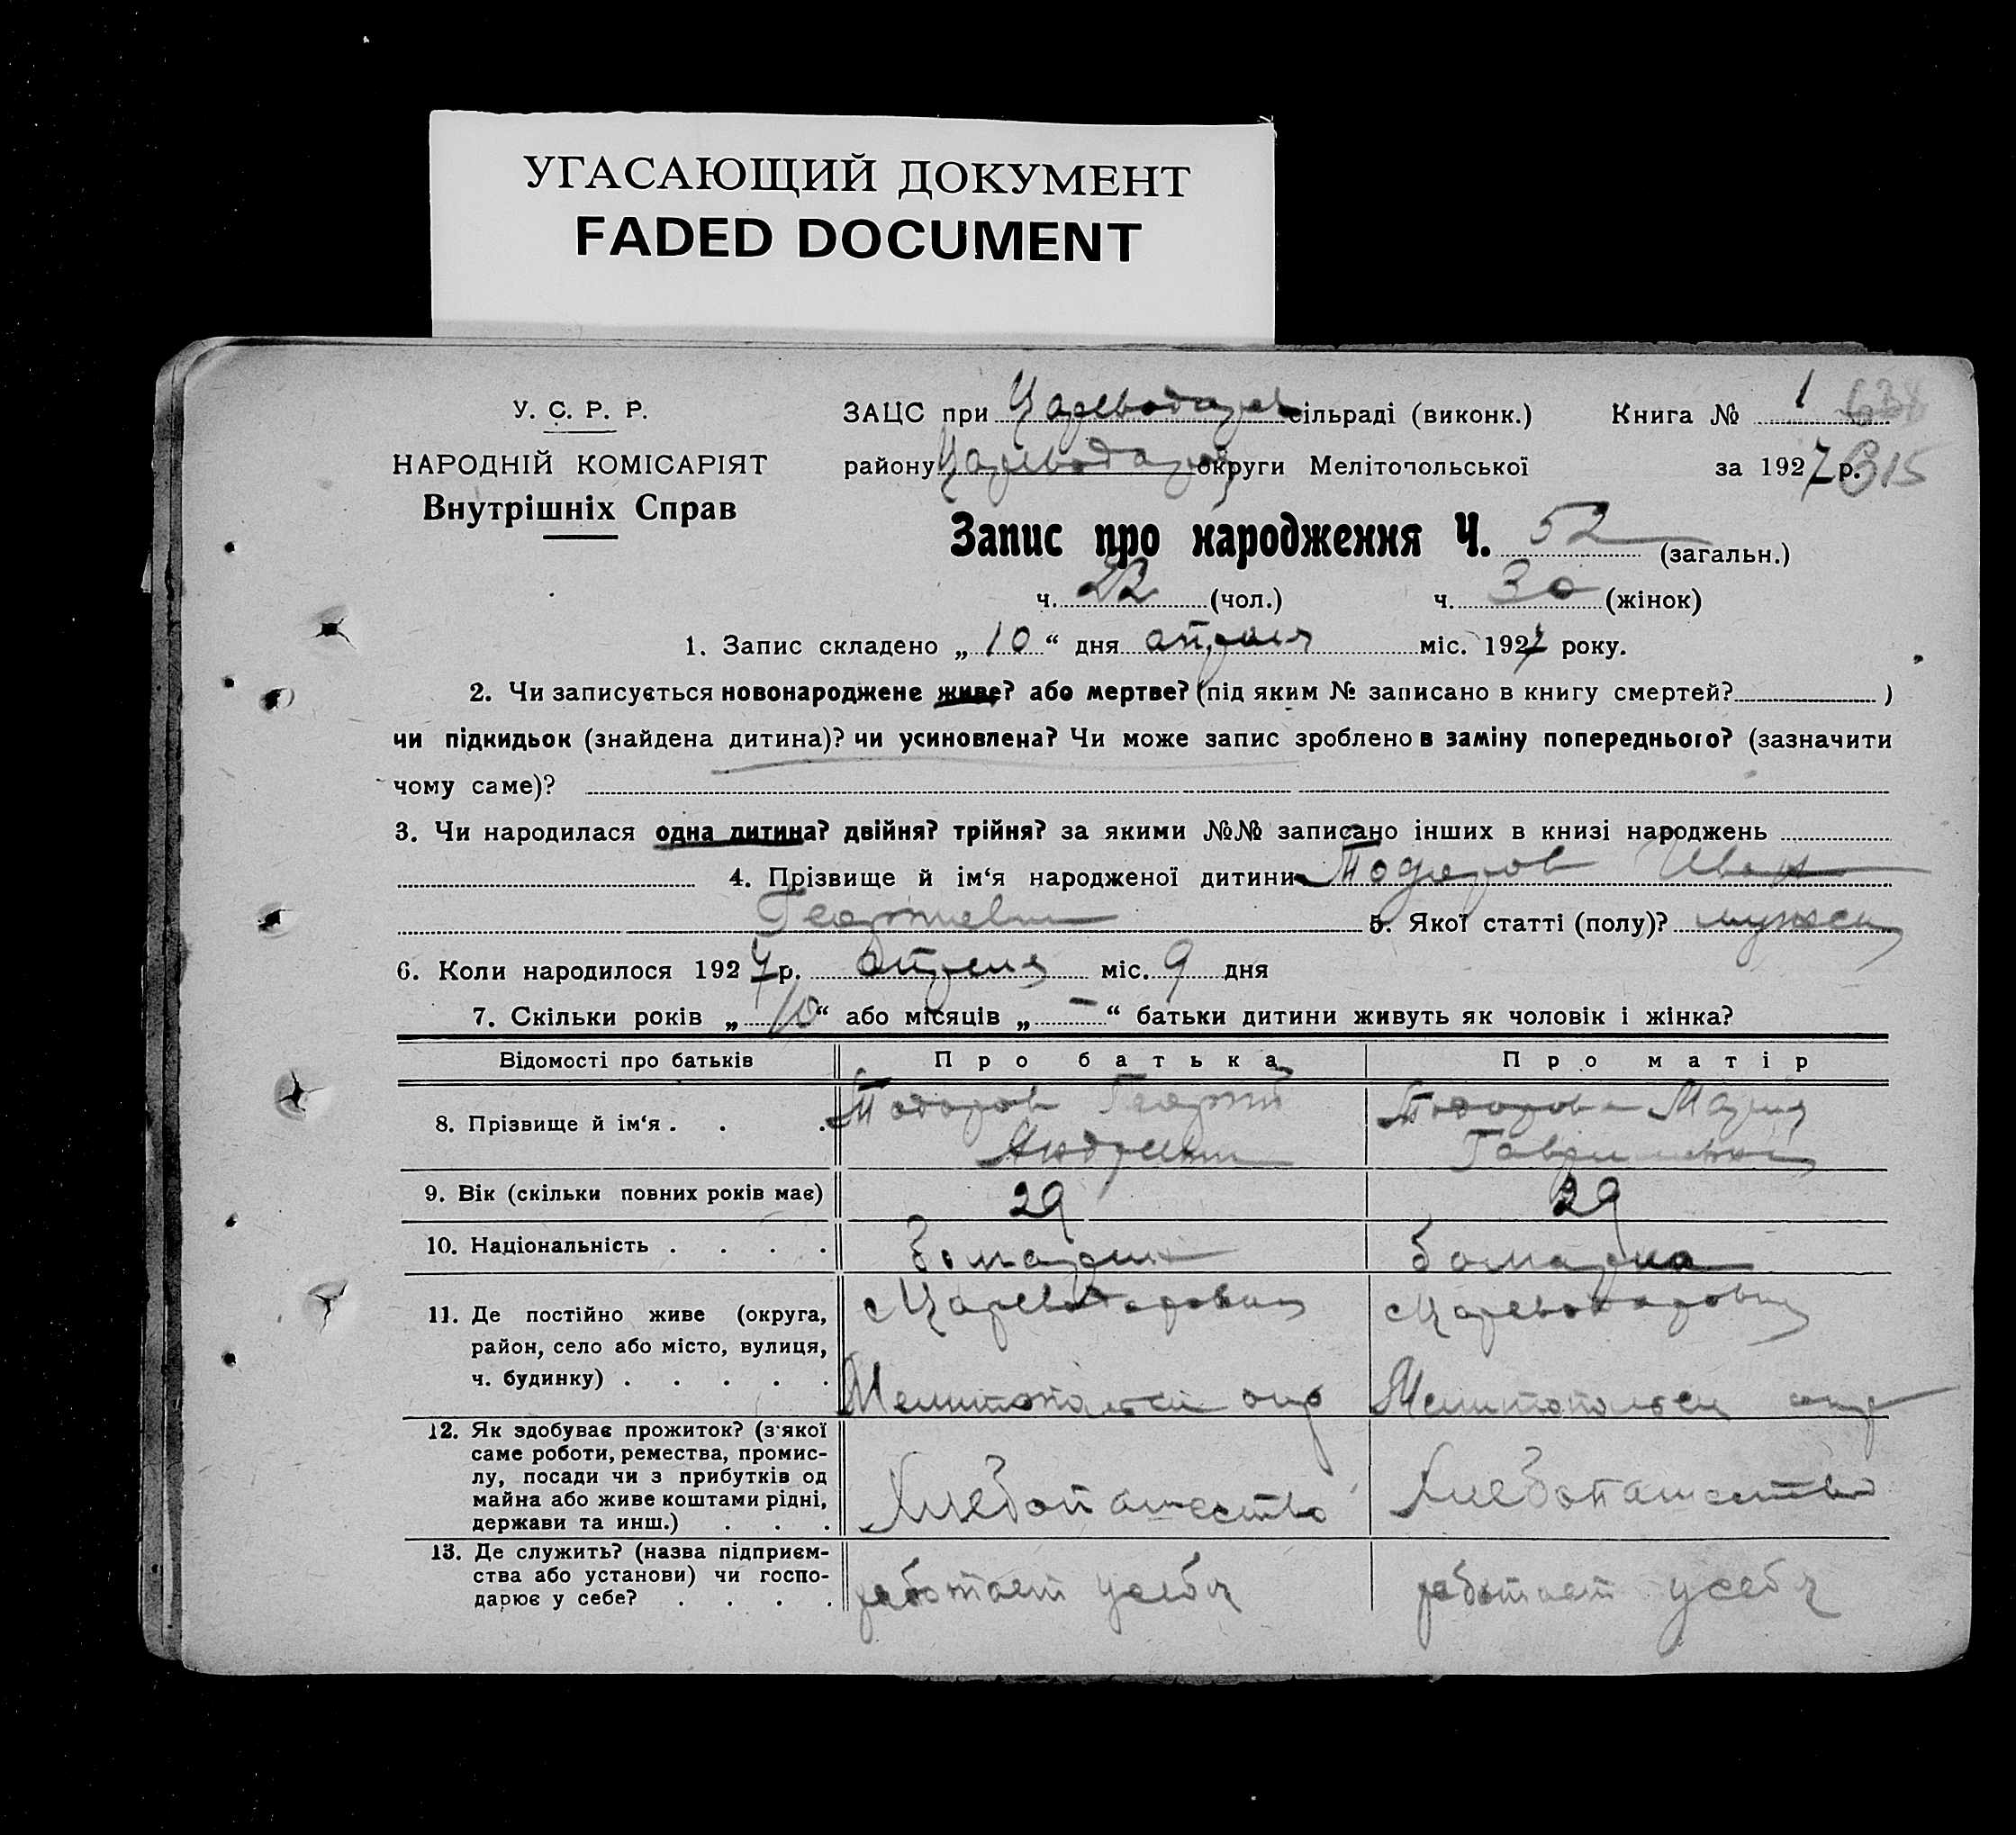 УГАСАЮЩИЙ ДОКУМЕНТ
FADED DOCUMENT
У. С. Р. Р.
НАРОДНІЙ КОМІСАРІЯТ
Внутрішніх Справ
ЗАЦС при Цареводар сільраді (виконк.) Книга № 1
району Цареводар округи Мелітопольської за 1927 р. 315
Запис про народження Ч. 52 (загальн.)
ч. 22 (чол.) ч. 30 (жінок)
1. Запис складено „ 10 “ дня апреля міс. 1927 року.
2. Чи записується новонароджене живе? або мертве? (під яким № записано в книгу смертей? )
чи підкидьок (знайдена дитина)? чи усиновлена? Чи може запис зроблено в заміну попереднього? (зазначити
чому саме)?
3. Чи народилася одна дитина? двійня? трійня? за якими №№ записано інших в книзі народжень
4. Прізвище й ім‘я народженої дитини Тодоров Иван
Георгиевич 5. Якої статті (полу)? мужск
6. Коли народилося 1927 р. апреля міс. 9 дня
7. Скільки років „ 10 “ або місяців „ – “ батьки дитини живуть як чоловік і жінка?
Відомості про батьків Про батька Про матір
8. Прізвище й ім‘я . . . Тодоров Георгий Тодорова Мария
Андреевич Гавриловна
9. Вік (скільки повних років має) 29 29
10. Національність . . . . болгарин болгарка
11. Де постійно живе (округа, с Цареводаровки с Цареводаровки
район, село або місто, вулиця,
ч. будинку) . . . . . Мелитопольск окр Мелитопольск окр
12. Як здобуває прожиток? (з'якої
саме роботи, ремества, промис-
лу, посади чи з прибутків од
майна або живе коштами рідні, Хлебопашество Хлебопашество
держави та инш.) . . .
13. Де служить? (назва підприєм-
ства або установи) чи госпо- работает у себя работает у себя
дарює у себе? . . . .